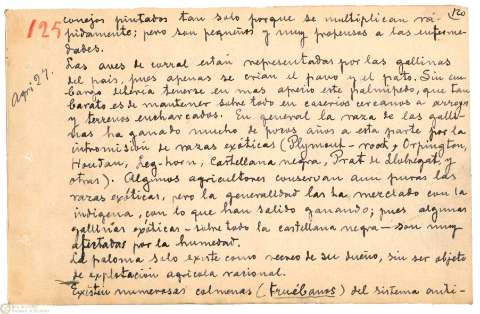 120
125
conejos pintados tan solo porque se multiplican rá-
pidamente; pero son pequeños y muy propensos a las enferme-
dades.
Agri-27.
Las aves de corral están representadas por las gallinas
del país, pues apenas se crian el pavo y el pato. Sin em-
bargo debería tenerse en mas aprecio este palmípedo, que tan
barato es de mantener sobre todo en caserios cercanos a arroyos
y terrenos encharcados. En general la raza de las galli-
nas ha ganado mucho de pocos años a esta parte por la
intromision de razas exóticas (Plymouth-rook y Orpington,
Houdan, Leg-horn, Castellana negra, Prat de Llobregat y
otras). Algunos agricultores conservan aun puras las
razas exóticas, pero la generalidad las ha mezclado con la
indígena, con lo que han salido ganando; pues algunas
gallinas exóticas - sobre todo la castellana negra - son muy
afectadas por la humedad.
La paloma solo existe como recreo de su dueño, sin ser objeto
de explotación agrícola racional.
Existen numerosas colmenas (truébanos) del sistema anti-